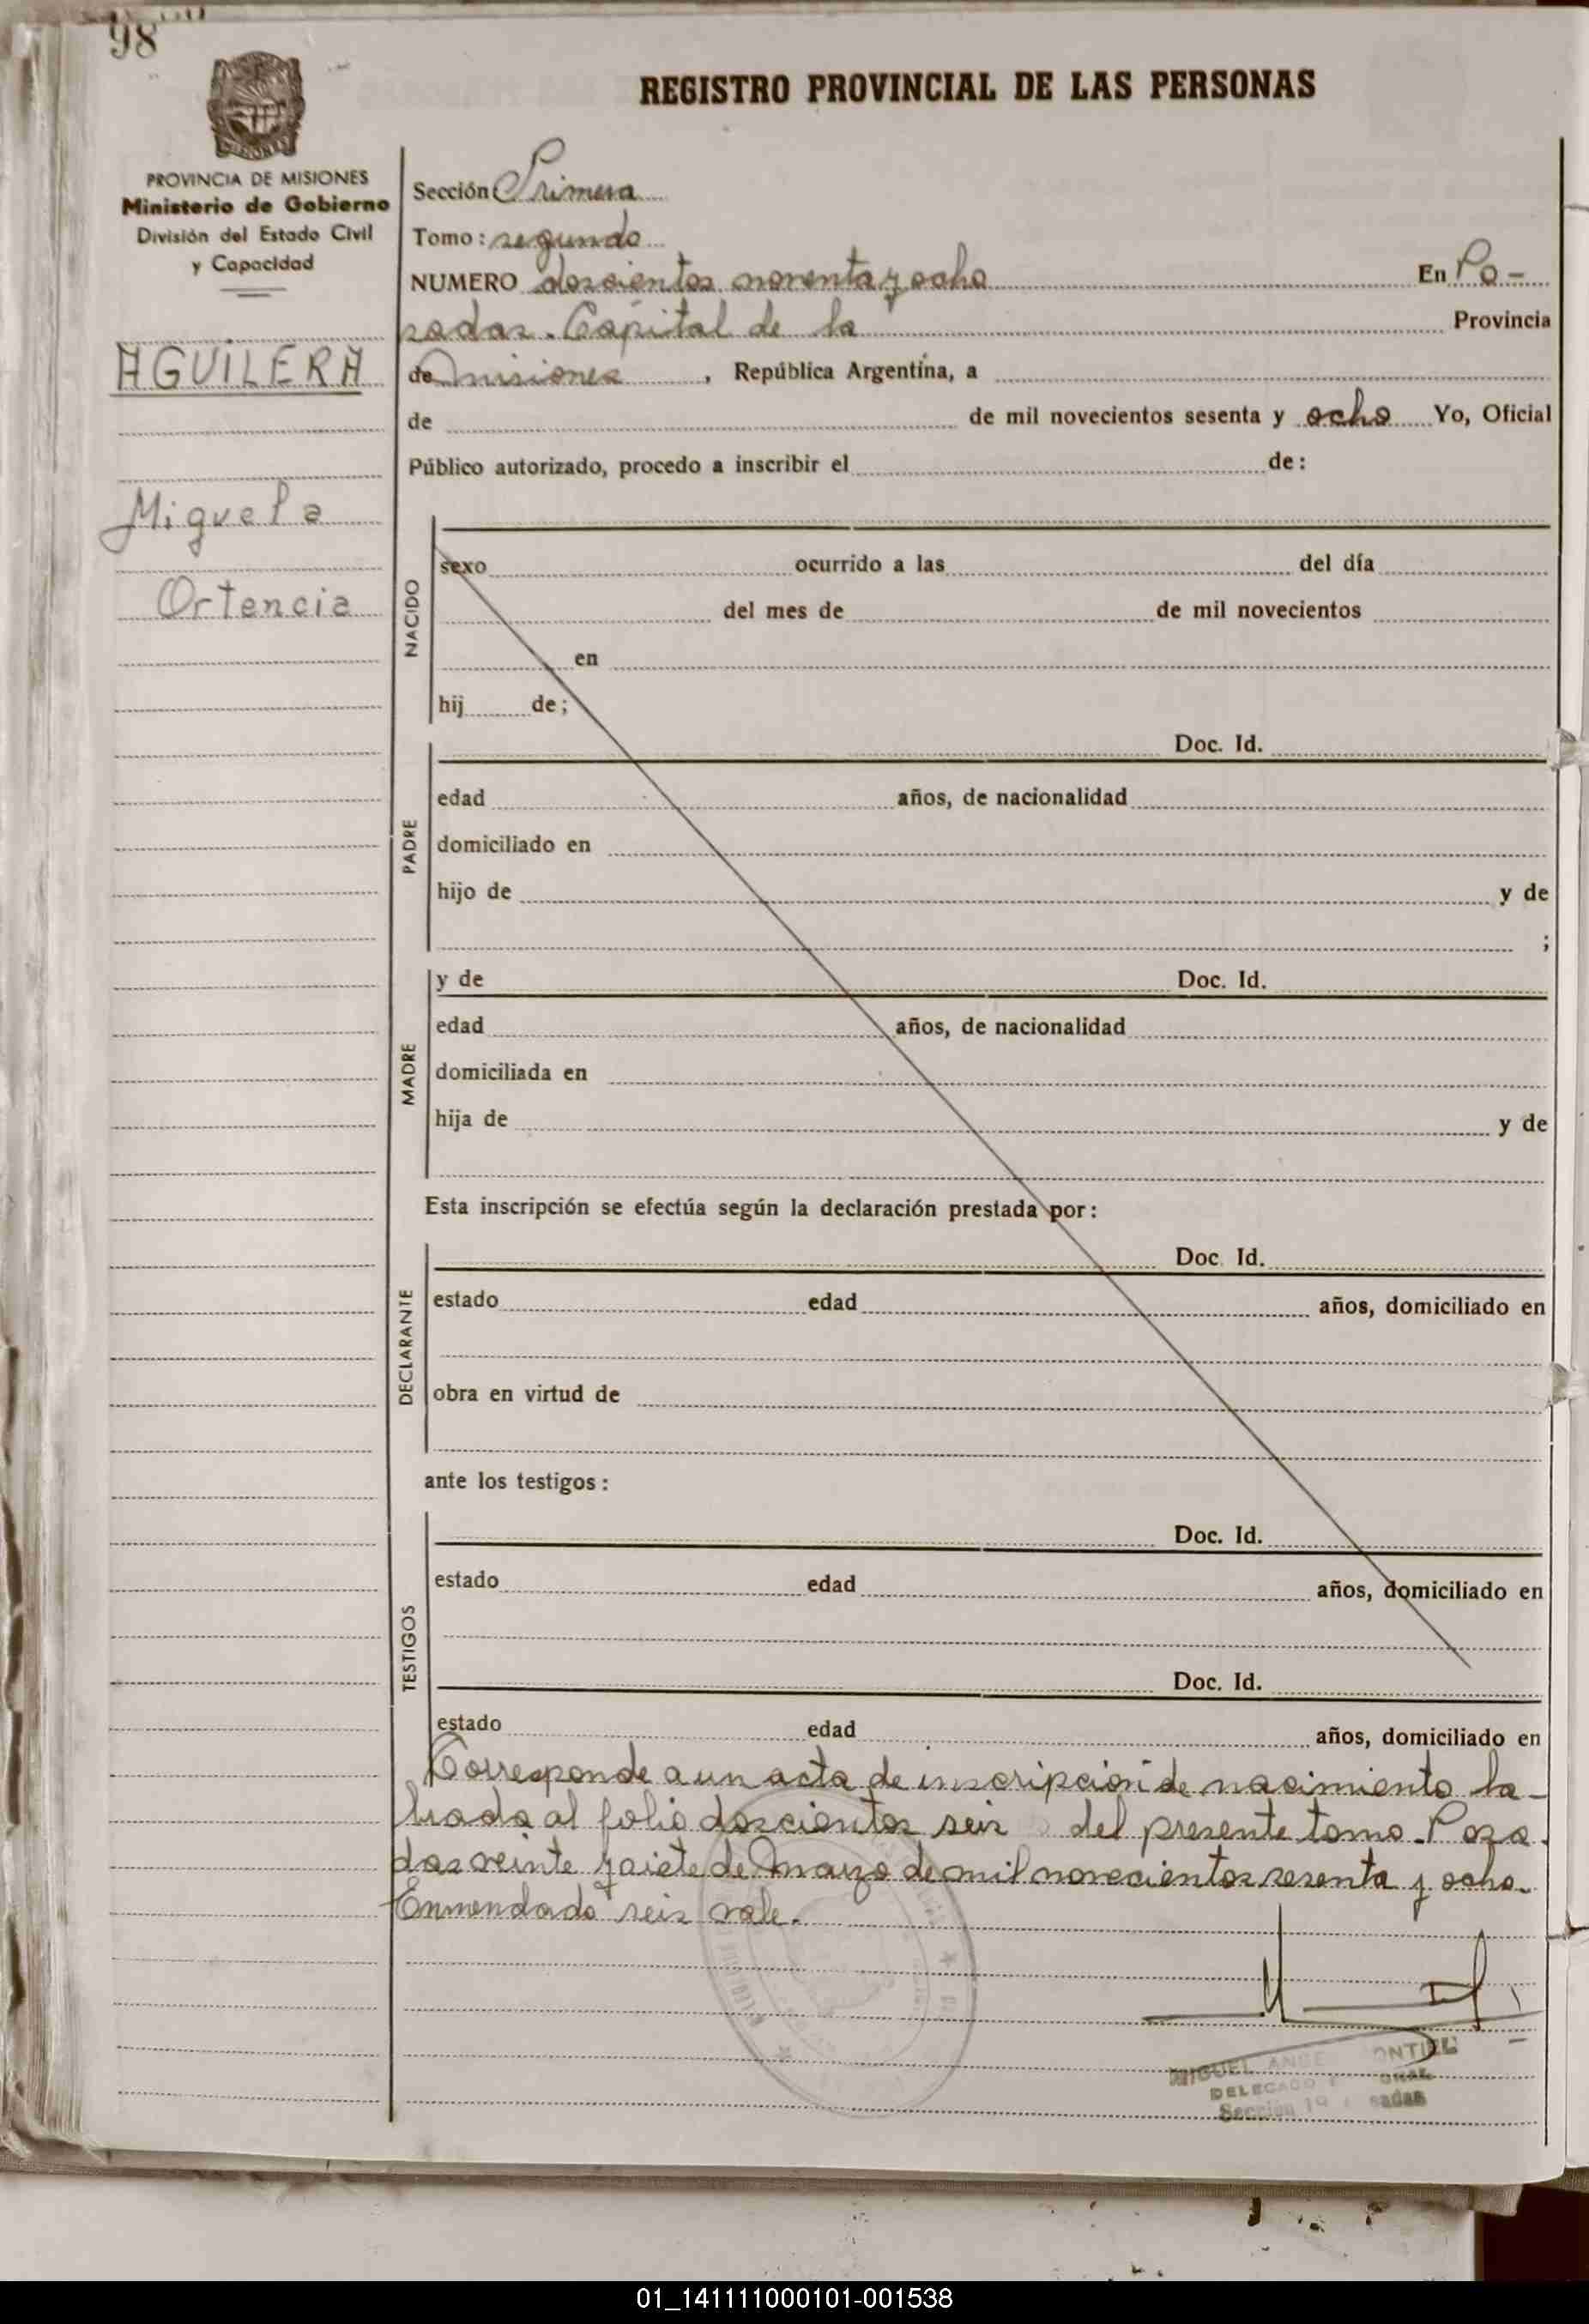 98
REGISTRO PROVINCIAL DE LAS PERSONAS
PROVINCIA DE MISIONES
Ministerio de Gobierno
División del Estado Civil
y Capacidad
AGUILERA
Miguela
Ortencia
Sección Primera
Tomo: segundo
NUMERO doscientos noventa y ocho En Po-
sadas. Capital de la Provincia
de Misiones, República Argentina, a
de de mil novecientos sesenta y ocho Yo, Oficial
Público autorizado, procedo a inscribir el de:
NACIDO
sexo ocurrido a las del día
del mes de de mil novecientos
en
hij de;
PADRE
Doc. Id.
edad años, de nacionalidad
domiciliado en
hijo de y de
;
MADRE
y de Doc. Id.
edad años, de nacionalidad
domiciliada en
hija de y de
Esta inscripción se efectúa según la declaración prestada por:
DECLARANTE
Doc. Id.
estado edad años, domiciliado en
obra en virtud de
ante los testigos:
TESTIGOS
Doc. Id.
estado edad años, domiciliado en
Doc. Id.
estado edad años, domiciliado en
Corresponde a un acta de inscripción de nacimiento la-
brada al folio doscientos seis del presente tomo. Posa-
das veinte y siete de Marzo de mil novecientos sesenta y ocho.
Enmendado seis vale.
MIGUEL
DELEGADO
Sección 1º
01_141111000101-001538